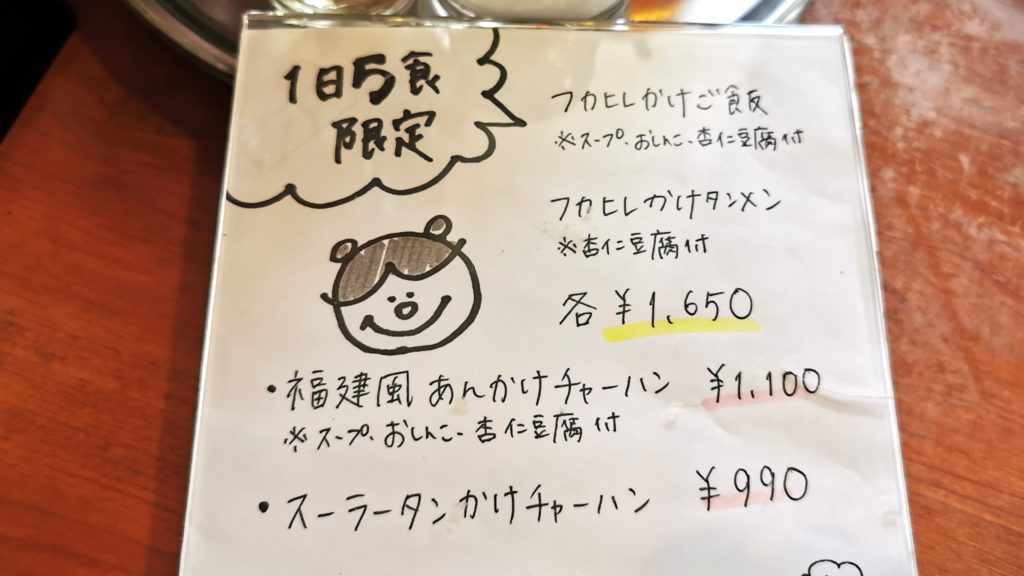 1日5食
限定
フカヒレかけご飯
※スープ、おしんこ、杏仁豆腐付
フカヒレかけタンメン
※杏仁豆腐付
各 ¥1,650
・福建風 あんかけチャーハン ¥1,100
※スープ、おしんこ、杏仁豆腐付
・スーラータンかけチャーハン ¥990